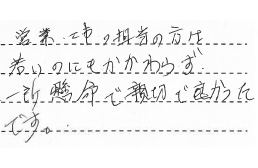 営業、工事の担当の方は
若いのにもかかわらず、
一所懸命で親切で良かった
です。